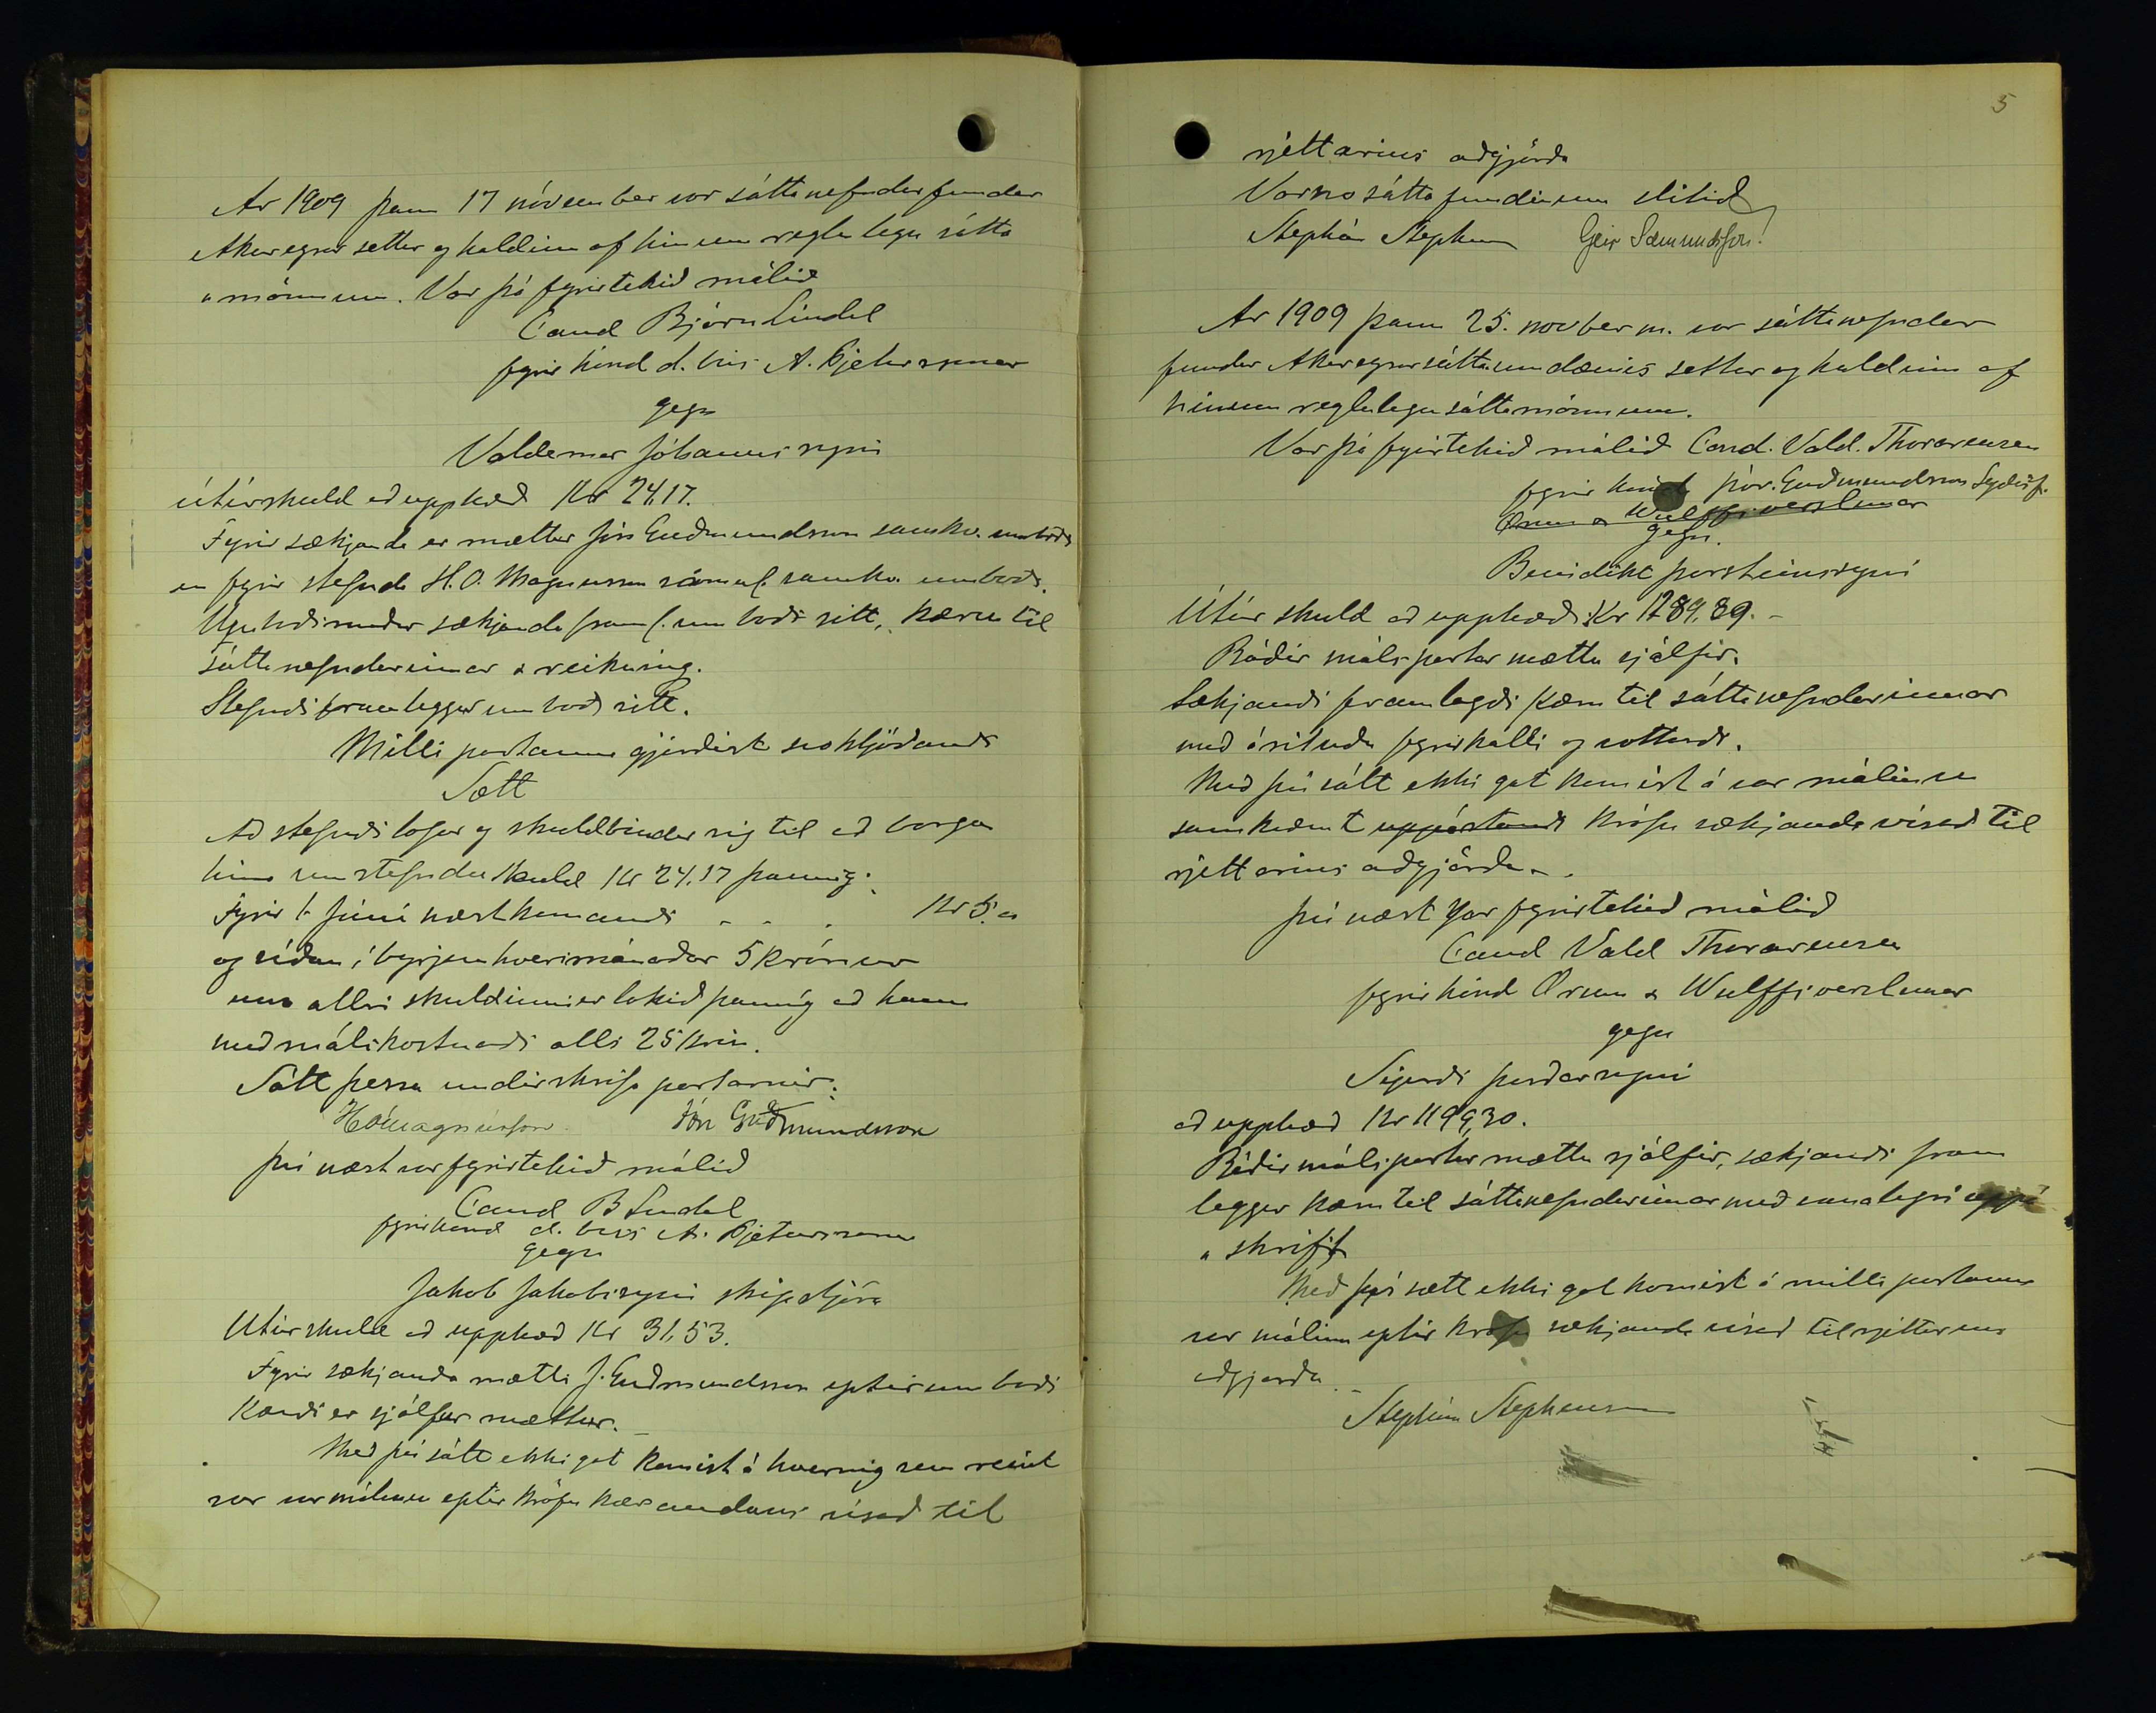 Ar 1909 þann 17 nóvember var sáttanefndarfundur
Akureyrar settur og haldinn af hinum reglulegu sátta
"mönnum. Var þá fyrirtekið málið
Cand Björn Líndal
fyrir hönd d. bús A. Pjeturssonar
gegn
Valdemar Jóhannssyni
útúr skuld að upphæð Kr 24.17.
Fyrir sækjanda er mættur Jón Guðmundsson samkv. umboði
en fyrir stefnda H.O. Magnusson sömul. samkv. umboði.
Umboðsmaður sækjanda framl. umboð sitt, kæru til
sáttanefndarinnar & reikning.
Stefndi framleggur umboð sitt.
Milli partanna gjörðist svohljóðandi
Sátt
Að stefndi lofar og skuldbindur sig til að borga
hina umstefndu skuld Kr 24.17 þannig:
Fyrir 1. júní næstkomandi - - - Kr 5.00
og síðan í byrjun hvers mánaðar 5 krónur
uns allri skuldinni er lokið þannig að hann
með málskostnaði alls 25 krón.
Sátt þessa undirskrifa partarnir:
HóMagnússon Jón Guðmundsson
Því næst var fyrirtekið málið
Cand B Lindal
fyrir hönd d. bús A. Pjeturssonar
gegn
Jakob Jakobssyni skipstjóra
Útúr skuld að upphæð Kr 31,53.
Fyrir sækjanda mætti J. Guðmundsson eptir umboði
Kærði er sjálfur mættur. -
Með því sátt ekki gat komist á hvernig sem reint
var var málinu eptir kröfu kærandans vísað til
5
rjettarins aðgjörða
Var svo sáttafundinum slitið
Stephán Stephensen Geir Sæmundsson.
Ar 1909 þann 25. novber m. var sáttanefndar
fundur Akureyrarsáttaumdæmis settur og haldinn af
hinum reglulegu sáttamönnum.
Var þá fyrirtekið málið Cand. Vald. Thorarensen
fyrir hönd Þór. Guðmundsson Seyðisf.
Ørum & Wulffsverslunar
gegn.
Benidikt Þorsteinssyni
Útúr skuld að upphæð: Kr 1289,89. -
Báðir málspartar mættu sjálfir.
Sækjandi framlagði kæru til sáttanefndarinnar
með árituðu fyrirkalli og vottorði.
Með því sátt ekki gat komist á var málinu
samkvæmt uppástandi kröfu sækjanda vísað til
rjettarins aðgjörða - .
Því næst var fyrirtekið málið
Cand Vald Thorarensen
fyrir hönd Ørum & Wulffsverslunar
gegn
Sigurði Þórðarsyni
að upphæð Kr 1199,30.
Báðir málspartar mættu sjálfir, sækjandi fram
leggur kæru til sáttanefndarinnar með venalegri uppá
"skrift
Með því sátt ekki gat komist á milli partanna
var málinu eptir kröfu sækjanda vísað til rjettarins
aðgjörða. -
Stephán Stephensen